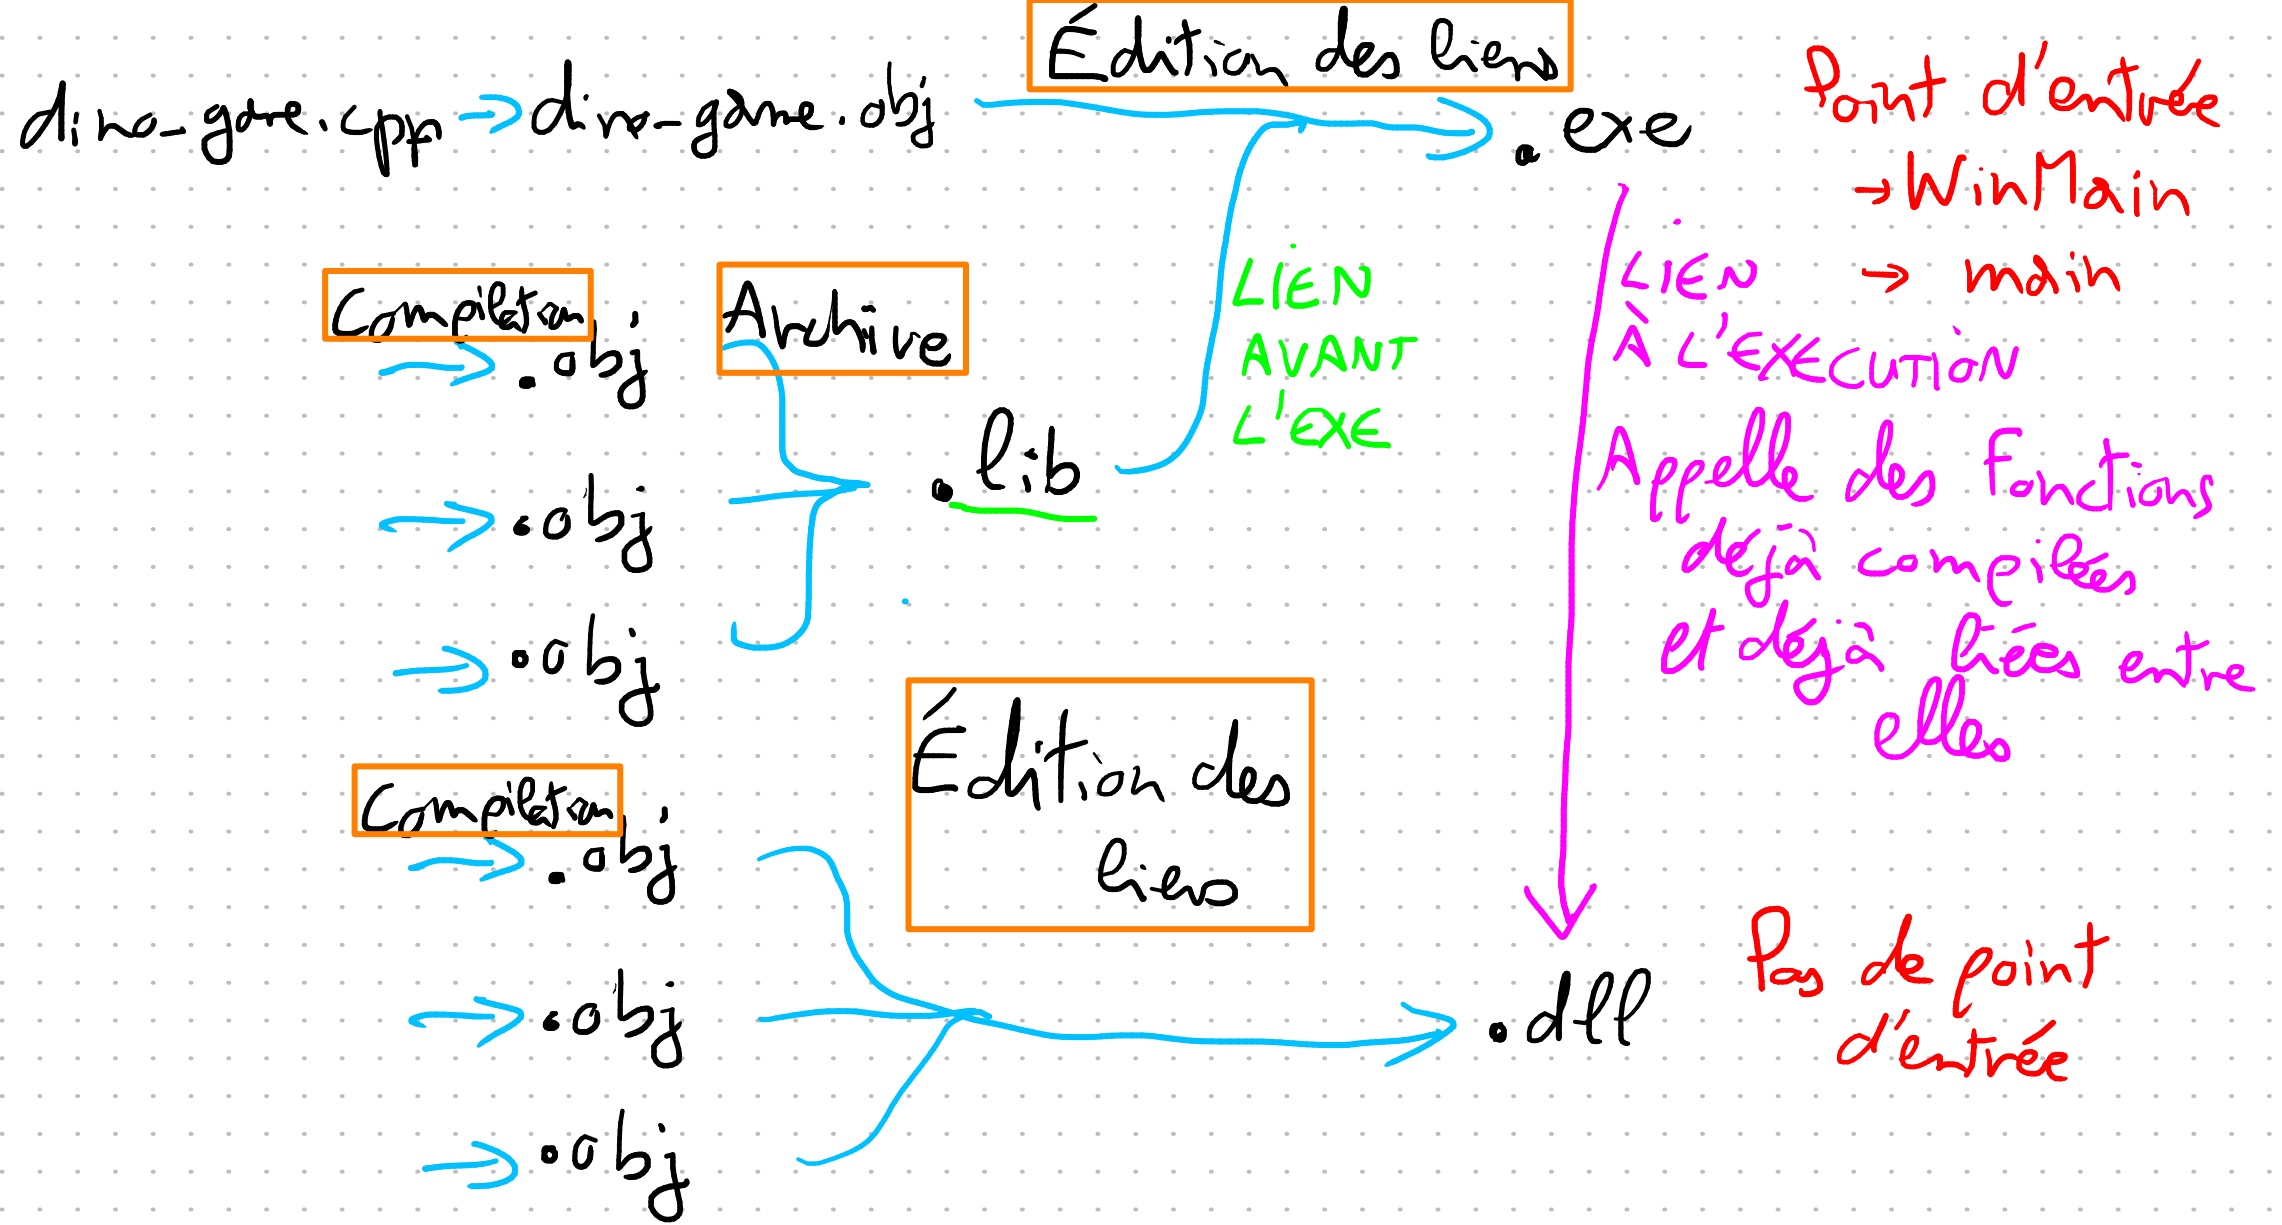 Édition des liens
dino_game.cpp → dino-game.obj
.exe
Point d'entrée
→ WinMain
→ main
Compilation
.obj
.obj
.obj
Archive
.lib
LIEN
AVANT
L'EXE
LIEN
À L'EXECUTION
Appelle des fonctions
déjà compilées
et déjà liées entre
elles
Compilation
.obj
.obj
.obj
Édition des
liens
.dll
Pas de point
d'entrée